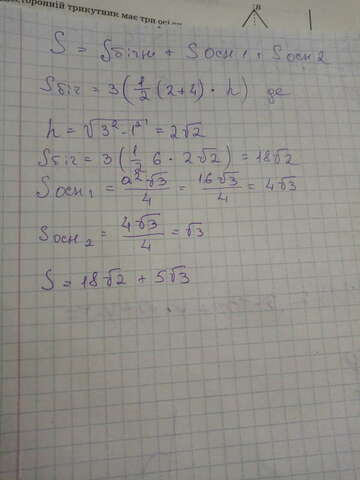 сторонній трикутник має три осі
B
S = Sбічн + Sосн1 + Sосн2
Sбіч = 3(1/2 (2+4) · h) де
h = √3² - 1² = 2√2
Sбіч = 3(1/2 6 · 2√2) = 18√2
Sосн1 = a²√3/4 = 16√3/4 = 4√3
Sосн2 = 4√3/4 = √3
S = 18√2 + 5√3